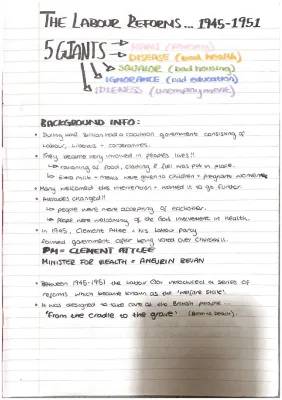 THE LABOUR REFORMS... 1945-1951
5 GIANTS → WANT (Poverty)
→ DISEASE (bad health)
→ SQUALOR (bad housing)
→ IGNORANCE (bad education)
→ IDLENESS (unemployment)
BACKGROUND INFO:
• During WWII Britain had a coalition government consisting of
Labour, Liberals + Conservatives.
• They became very involved in peoples lives!!
↳ rationing of food, clothing & fuel was put in place.
↳ Extra milk + meals were given to children + pregnant women
• Many welcomed this intervention + wanted it to go further.
• Attitudes changed!!
↳ people were more accepting of
↳ People were welcoming of the Govs involvement in health.
• In 1945, Clement Attlee + his Labour party
formed government after being voted over Churchill.
PM = CLEMENT ATTLEE
MINISTER FOR HEALTH = ANEURIN BEVAN
• Between 1945-1951 the Labour Gov introduced a series of
reforms which became known as the 'Welfare State'.
• It was designed to take care of the British people...
'from the cradle to the grave' (Birth to Death).